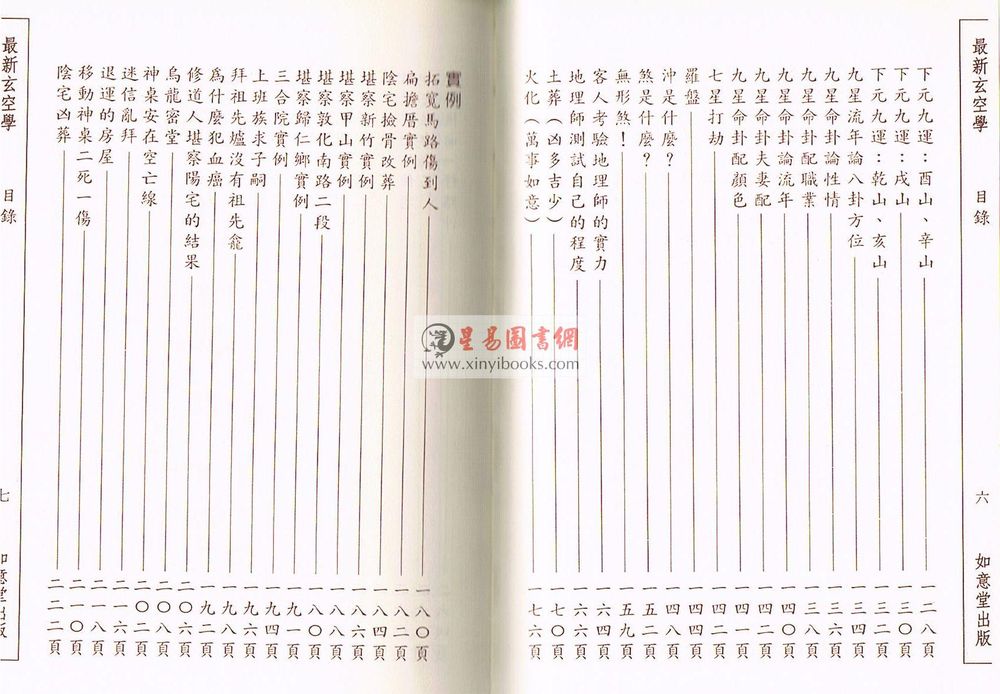 最新玄空學 目錄 六 如意堂出版
下元九運：酉山、辛山 一二八頁
下元九運：戌山 一三〇頁
下元九運：乾山、亥山 一三二頁
九星流年論八卦方位 一三六頁
九星命卦論性情 一三八頁
九星命卦配職業 一三八頁
九星命卦論流年 一四〇頁
九星命卦夫妻配 一四二頁
九星命卦配顏色 一四一頁
七星打劫 一四四頁
羅盤 一四四頁
沖是什麼？ 一四八頁
煞是什麼？ 一五二頁
無形煞！ 一五九頁
客人考驗地理師的實力 一六四頁
地理師測試自己的程度 一六六頁
土葬（凶多吉少） 一七〇頁
火化（萬事如意） 一七六頁
實例
拓寬馬路傷到人 一八〇頁
扁擔厝實例 一八二頁
陰宅撿骨改葬 一八四頁
堪察新竹實例 一八六頁
堪察甲山實例 一八八頁
堪察敦化南路二段 一八〇頁
堪察歸仁鄉實例 一九一頁
三合院實例 一九四頁
上班族求子嗣 一九六頁
拜祖先爐沒有祖先龕 一九八頁
爲什麼犯血癌 一九二頁
修道人堪察陽宅的結果 二〇六頁
烏龍密堂 二〇八頁
神桌安在空亡線 二〇二頁
迷信亂拜 二一六頁
退運的房屋 二一八頁
移動神桌二死一傷 二一〇頁
陰宅凶葬 二二二頁
最新玄空學 目錄 七 如意堂出版
星易圖書網
www.xinyibooks.com